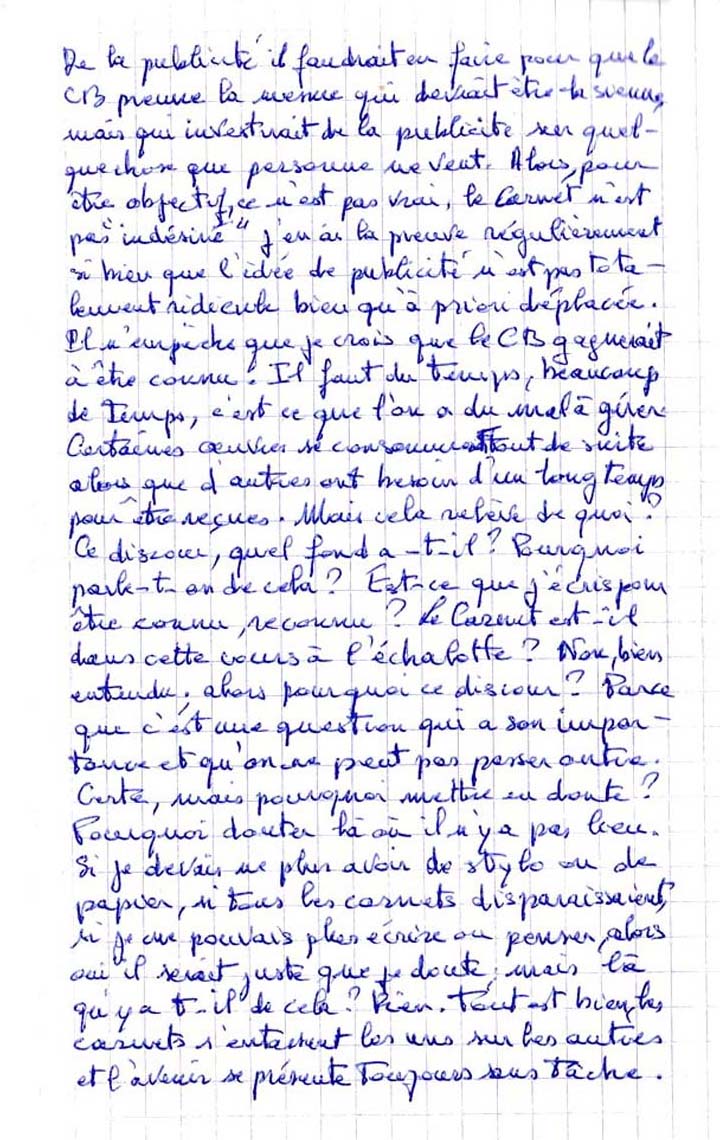 De la publicité il faudrait en faire pour que le
CB prenne la mesure qui devrait être la sienne,
mais qui investirait de la publicité sur quel-
que chose que personne ne veut. Alors, pour
être objectif, ce n'est pas vrai, le Carnet n'est
pas "indésiré" j'en ai la preuve régulièrement
si bien que l'idée de publicité n'est pas tota-
lement ridicule bien qu'à priori déplacée.
Il n'empêche que je crois que le CB gagnerait
à être connu. Il faut du temps, beaucoup
de Temps, c'est ce que l'on a du mal à gérer
Certaines œuvres se consomment tout de suite
alors que d'autres ont besoin d'un long temps
pour être reçues. Mais cela relève de quoi ?
Ce discour, quel fond a-t-il ? Pourquoi
parle-t-on de cela ? Est-ce que j'écris pour
être connu, reconnu ? Le Carnet est-il
dans cette cours à l'échalotte ? Non, bien
entendu, alors pourquoi ce discour ? Parce
que c'est une question qui a son impor-
tance et qu'on ne peut pas passer outre.
Certe, mais pourquoi mettre en doute ?
Pourquoi douter là où il n'y a pas lieu.
Si je devais ne plus avoir de stylo ou de
papier, si tous les carnets disparaissaient,
si je ne pouvais plus écrire ou penser, alors
oui il serait juste que je doute, mais là
qu'y a t-il de cela ? Rien. Tout est bien, les
carnets s'entassent les uns sur les autres
et l'avenir se présente Toujours sans tâche.